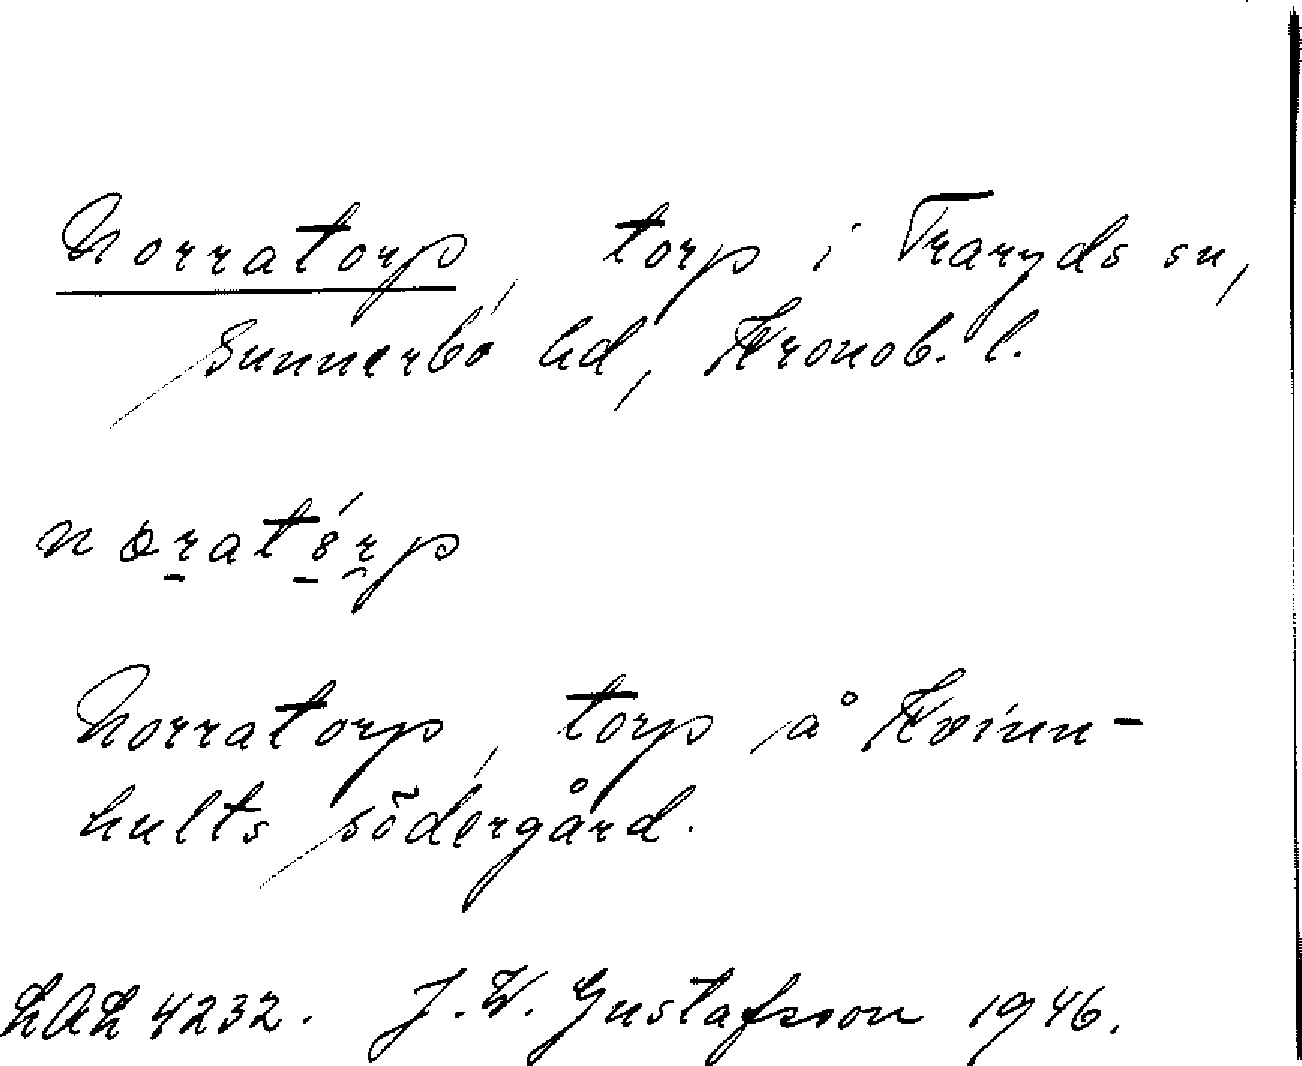 Norratorp, torp i Traryds sn,
Sunnerbo hd, Kronob. l.
Norratorp, torp å Kvinn-
hults södergård.
LAL 4232. J. W. Gustafsson 1946.